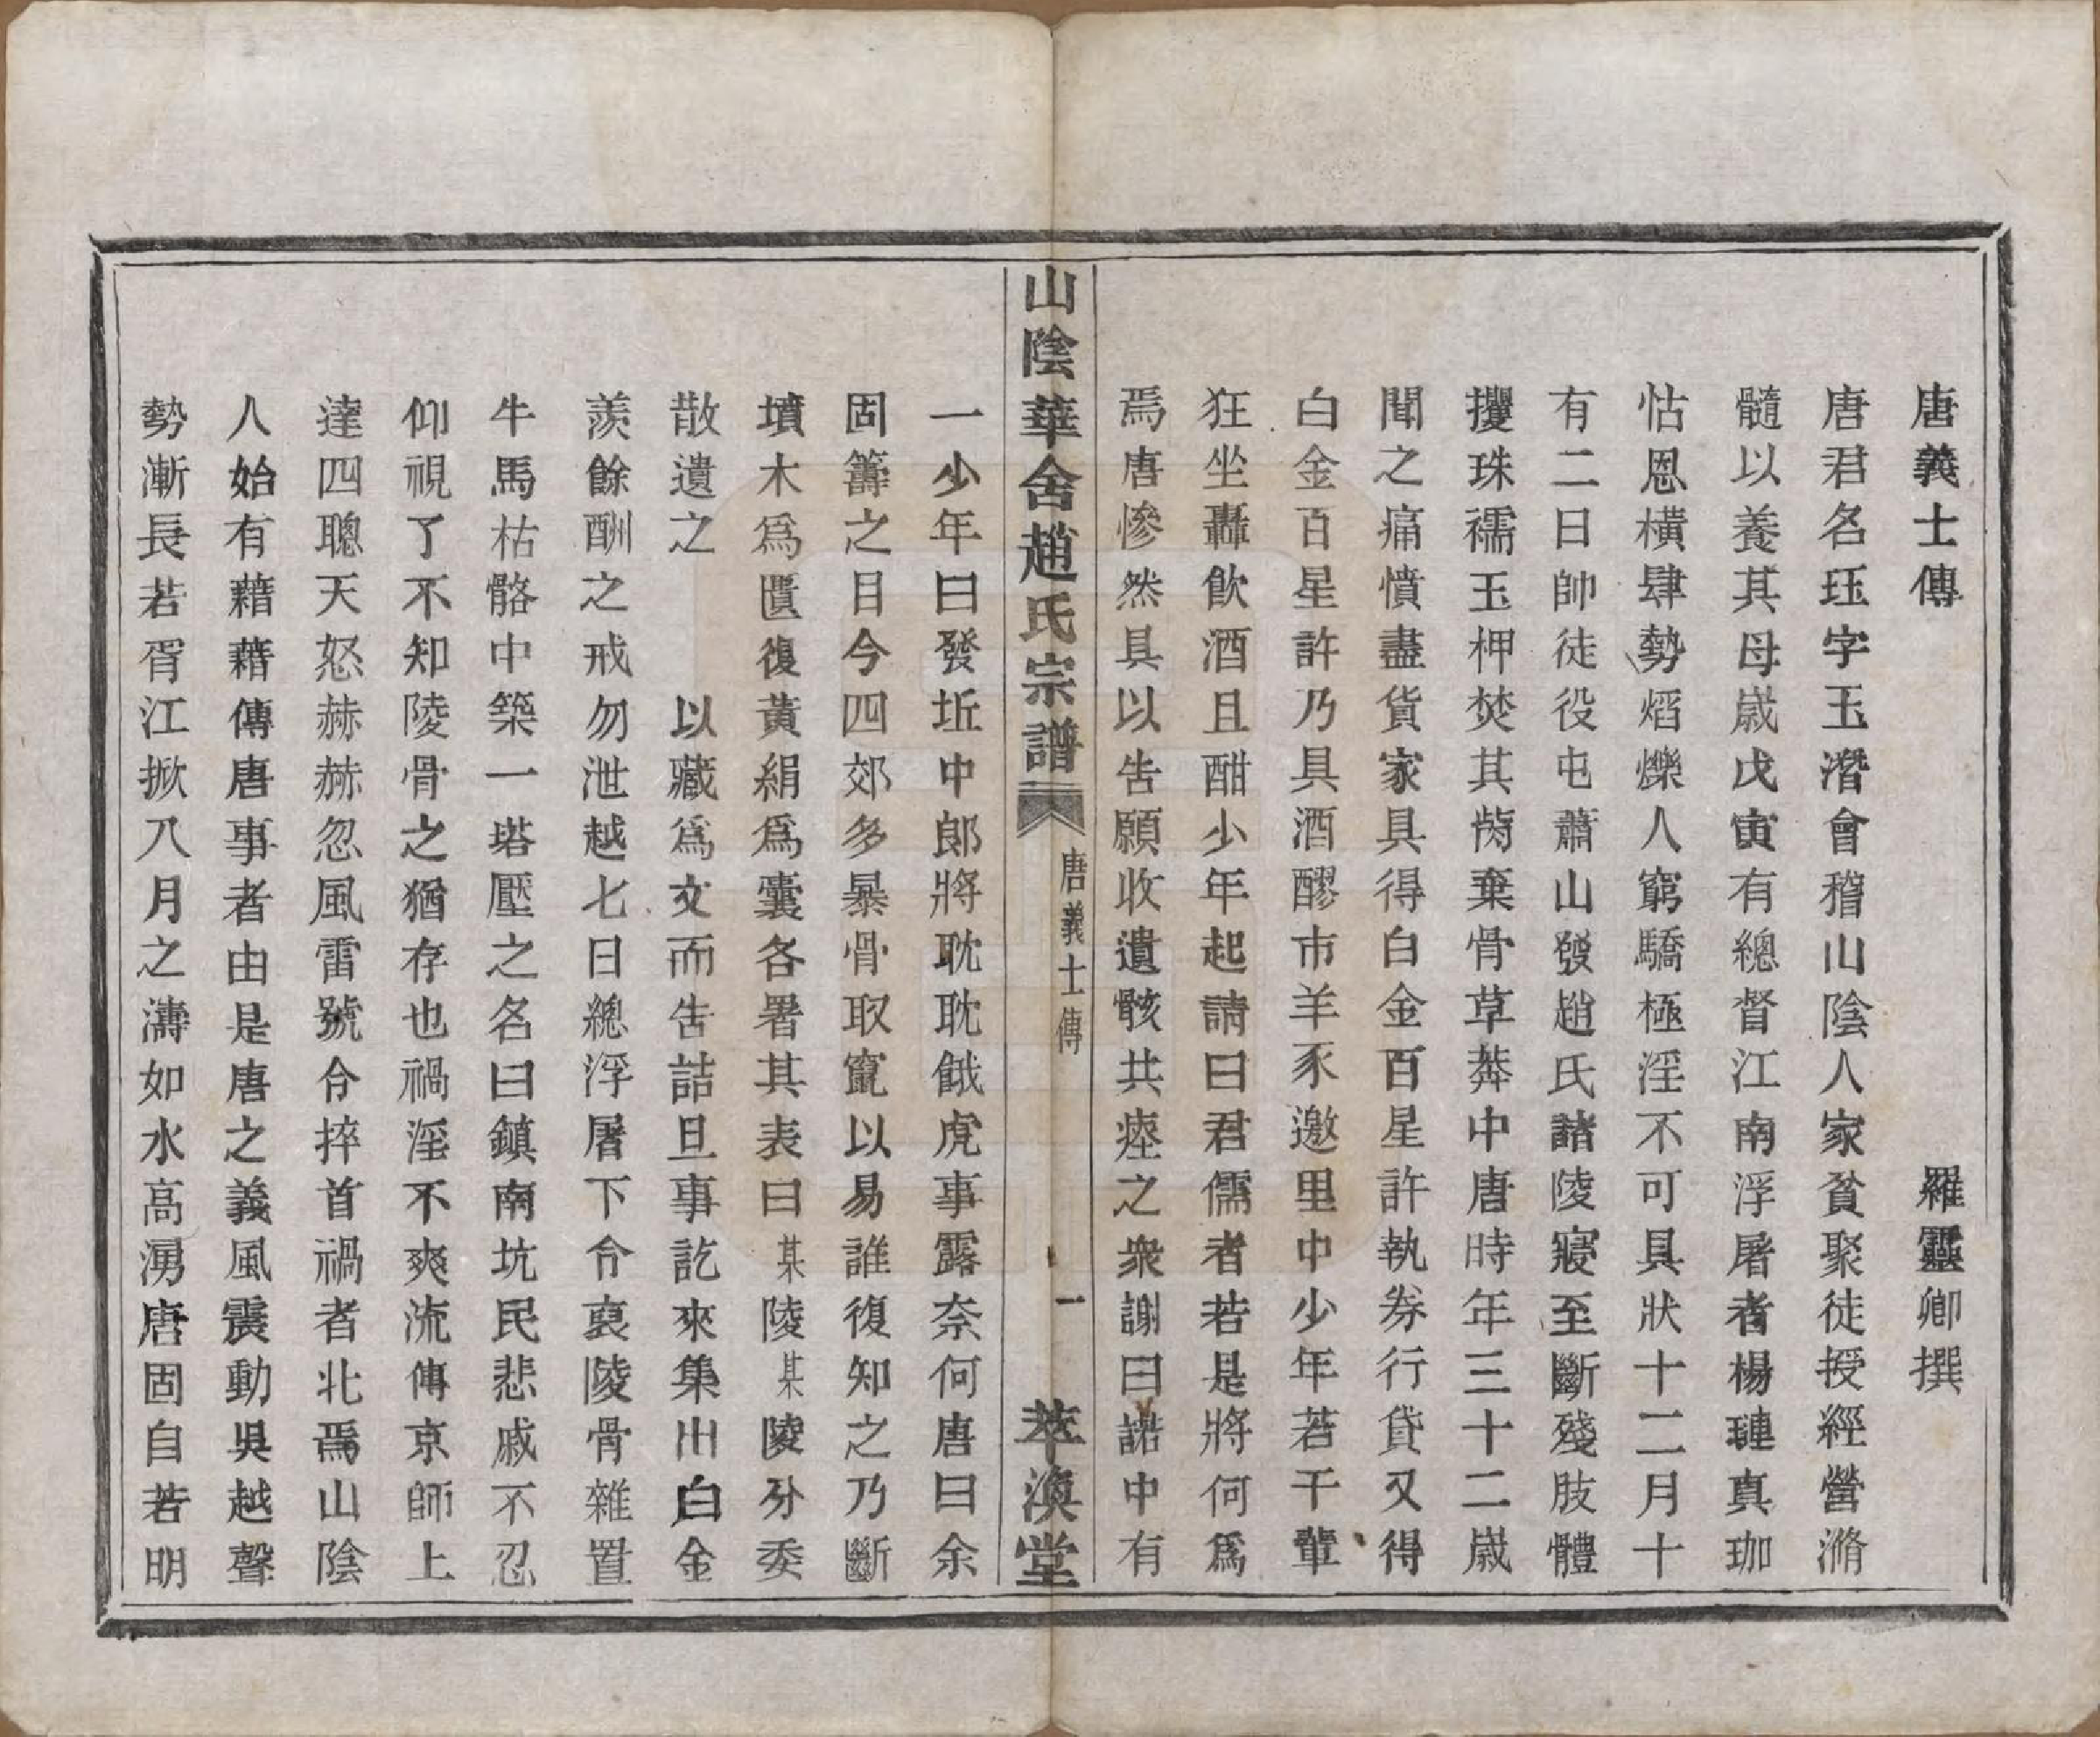 唐義士傳　羅靈卿撰
唐君名珏字玉潛會稽山陰人家貧聚徒授經營滫
髓以養其母歲戊寅有總督江南浮屠者楊璉真珈
怙恩橫肆勢熖爍人窮驕極淫不可具狀十二月十
有二日帥徒役屯蕭山發趙氏諸陵寢至斷殘肢體
攫珠襦玉柙焚其胔棄骨草莽中唐時年三十二歲
聞之痛憤盡貨家具得白金百星許執券行貸又得
白金百星許乃具酒醪市羊豕邀里中少年若干輩
狂坐轟飲酒且酣少年起請曰君儒者若是將何爲
焉唐慘然具以告願收遺骸共瘞之衆謝曰諾中有
山陰華舍趙氏宗譜　唐義士傳　一　萃渙堂
一少年曰發坵中郎將耽耽餓虎事露奈何唐曰余
固籌之目今四郊多暴骨取竄以易誰復知之乃斷
墳木爲匱復黃絹爲囊各署其表曰某陵某陵分委
散遺之　　以藏爲文而告詰旦事訖來集出白金
羨餘酬之戒勿泄越七日總浮屠下令裒陵骨雜置
牛馬枯骼中築一塔壓之名曰鎮南坑民悲戚不忍
仰視了不知陵骨之猶存也禍淫不爽流傳京師上
達四聰天怒赫赫忽風雷號令捽首禍者北焉山陰
人始有藉藉傳唐事者由是唐之義風震動吳越聲
勢漸長若胥江掀八月之濤如水高湧唐固自若明